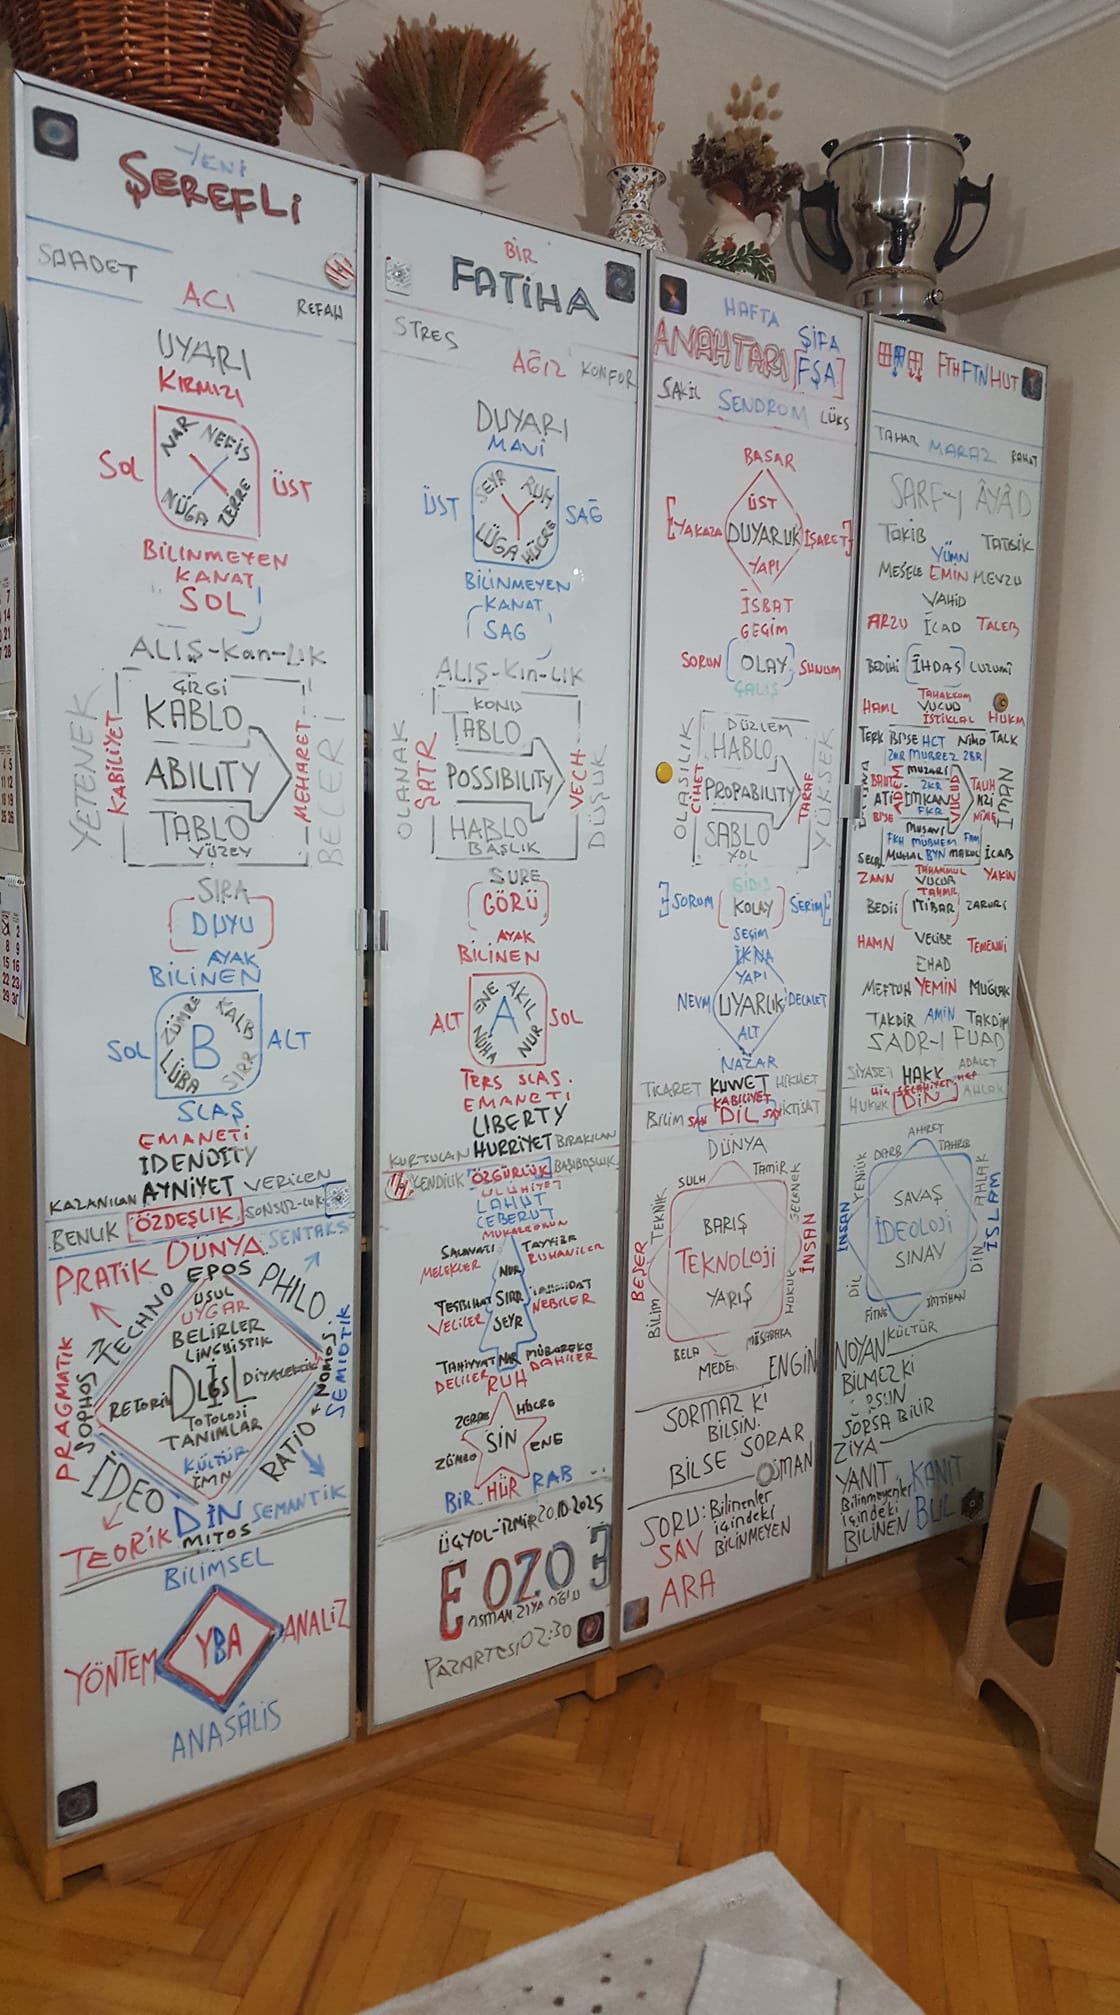 YENİ
ŞEREFLİ
SAADET
ACI
REFAH
UYARI
KIRMIZI
NAR NEFİS
SOL
ÜST
NÜGA ZERRE
BİLİNMEYEN
KANAT
SOL
ALIŞ-Kan-LIK
ÇİZGİ
YETENEK
KABİLİYET
KABLO
ABILITY
TABLO
YÜZEY
MEHARET
BECERİ
SIRA
DUYU
AYAK
BİLİNEN
ZÜMRE KALB
SOL
B
ALT
LÜBA SIRR
SLAŞ
EMANETİ
IDENDITY
KAZANILAN AYNİYET VERİLEN
BENLIK ÖZDEŞLİK SONSUZ-LUK
PRATİK DÜNYA SENTAKS
EPOS
TECHNO
PHILO
USUL
UYGAR
BELİRLER
LİNGUİSTİK
PRAGMATİK
SOPHOS
RETORİK
DİYALEKTİK
NOMOS
SEMIOTIK
TOTOLOJİ
TANIMLAR
KÜLTÜR
İMN
İDEO
RATIO
DİN
SEMANTİK
TEORİK
MITOS
BİLİMSEL
YÖNTEM
YBA
ANALİZ
ANASÂLİS
BİR
FATİHA
STRES
AĞIZ KONFOR
DUYARI
MAVİ
SEYR RUH
ÜST
SAĞ
LÜGA HÜCRE
BİLİNMEYEN
KANAT
SAG
ALIŞ-Kın-LIK
KONU
OLANAK
SATR
TABLO
POSSIBILITY
HABLO
BAŞLIK
VECH
DÜŞÜK
SURE
GÖRÜ
AYAK
BİLİNEN
ENE AKIL
ALT
A
SOL
NÜHA NUR
TERS SLAŞ.
EMANETİ
LIBERTY
KURTULAN HÜRRİYET BIRAKILAN
KENDİLİK ÖZGÜRLÜK BAŞIBOŞLUK
ULUHİYET
LAHUT
CEBERUT
MUKARREBUN
SALAVATI TAYYİBE
MELEKLER
NUR
RUHANİLER
TESBİHAT
SIRR
VELİLER
NEBİLER
SEYR
TAHİYYAT
NAR
MÜBAREKE
DELİLER
DAHİLER
RUH
ZERRE HÜCRE
SİN
ZÜMRE
ENE
BİR HÜR RAB
ÜÇYOL-İZMİR 20.10.2025
E OZO 3
OSMAN ZİYA OĞLU
PAZARTESİ 02:30
HAFTA
ŞİFA
ANAHTARI [FŞA]
SAKİL SENDROM LÜKS
BASAR
ÜST
[YAKAZA DUYARLIK İŞARET]
YAPI
İSBAT
GEÇİM
SORUN OLAY SUNUM
ÇALIŞ
DÜZLEM
OLASILIK
CİHET
HABLO
PROPABILITY
SABLO
YOL
TARAF
YÜKSEK
GİDİŞ
SORUM KOLAY SERİM
SEÇİM
İKNA
YAPI
NEVM UYARLIK DELALET
ALT
NAZAR
TİCARET KUVVET HİKMET
KABİLİYET
BİLİM SAN DİL SAY İKTİSAT
DÜNYA
SULH TAMİR
TEKNİK
GELENEK
BARIŞ
BEŞER
TEKNOLOJİ
İNSAN
YARIŞ
BİLİM
HUKUK
BELA MÜSABAKA
MEDE.
ENGİN
SORMAZ Kİ
BİLSİN.
BİLSE SORAR
OSMAN
SORU: Bilinenler
içindeki
SAV BİLİNMEYEN
ARA
FTHFTNHUT
TAHAR MARAZ RAHAT
SARF-I ÂYÂD
TAKİB TATBİK
YÜMN
MESELE EMİN MEVZU
VAHİD
ARZU İCAD TALEB
BEDİHİ İHDAS LUZUMİ
TAHAKKUM
HAML VUCUD HÜKM
İSTİKLAL
TERK BİŞE HCT NİMO TALK
MUZARİ
İMKAN
VUCUD
İMAN
MUHAL BYN MAKUL İCAB
TAHAMMUL
ZANN VUCUB YAKİN
TAHMİL
BEDİİ İTİBAR ZARURİ
HAMN VECİBE TEMENNİ
EHAD
MEFTUH YEMİN MUĞLAK
TAKDİR AMİN TAKDİM
SADR-I FUAD
SİYASET HAKK ADALET
HUKUK DİN AHLAK
AHİRET
DARB TAHRİB
YENİLİK
AHLAK
SAVAŞ
İNSAN
İDEOLOJİ
İSLAM
SINAV
DİL
DİN
FİTNE İMTİHAN
KÜLTÜR
NOYAN
BİLMEZ Kİ
SORSUN
SORSA BİLİR
ZİYA
YANIT KANIT
Bilinmeyenler
içindeki
BİLİNEN BUL